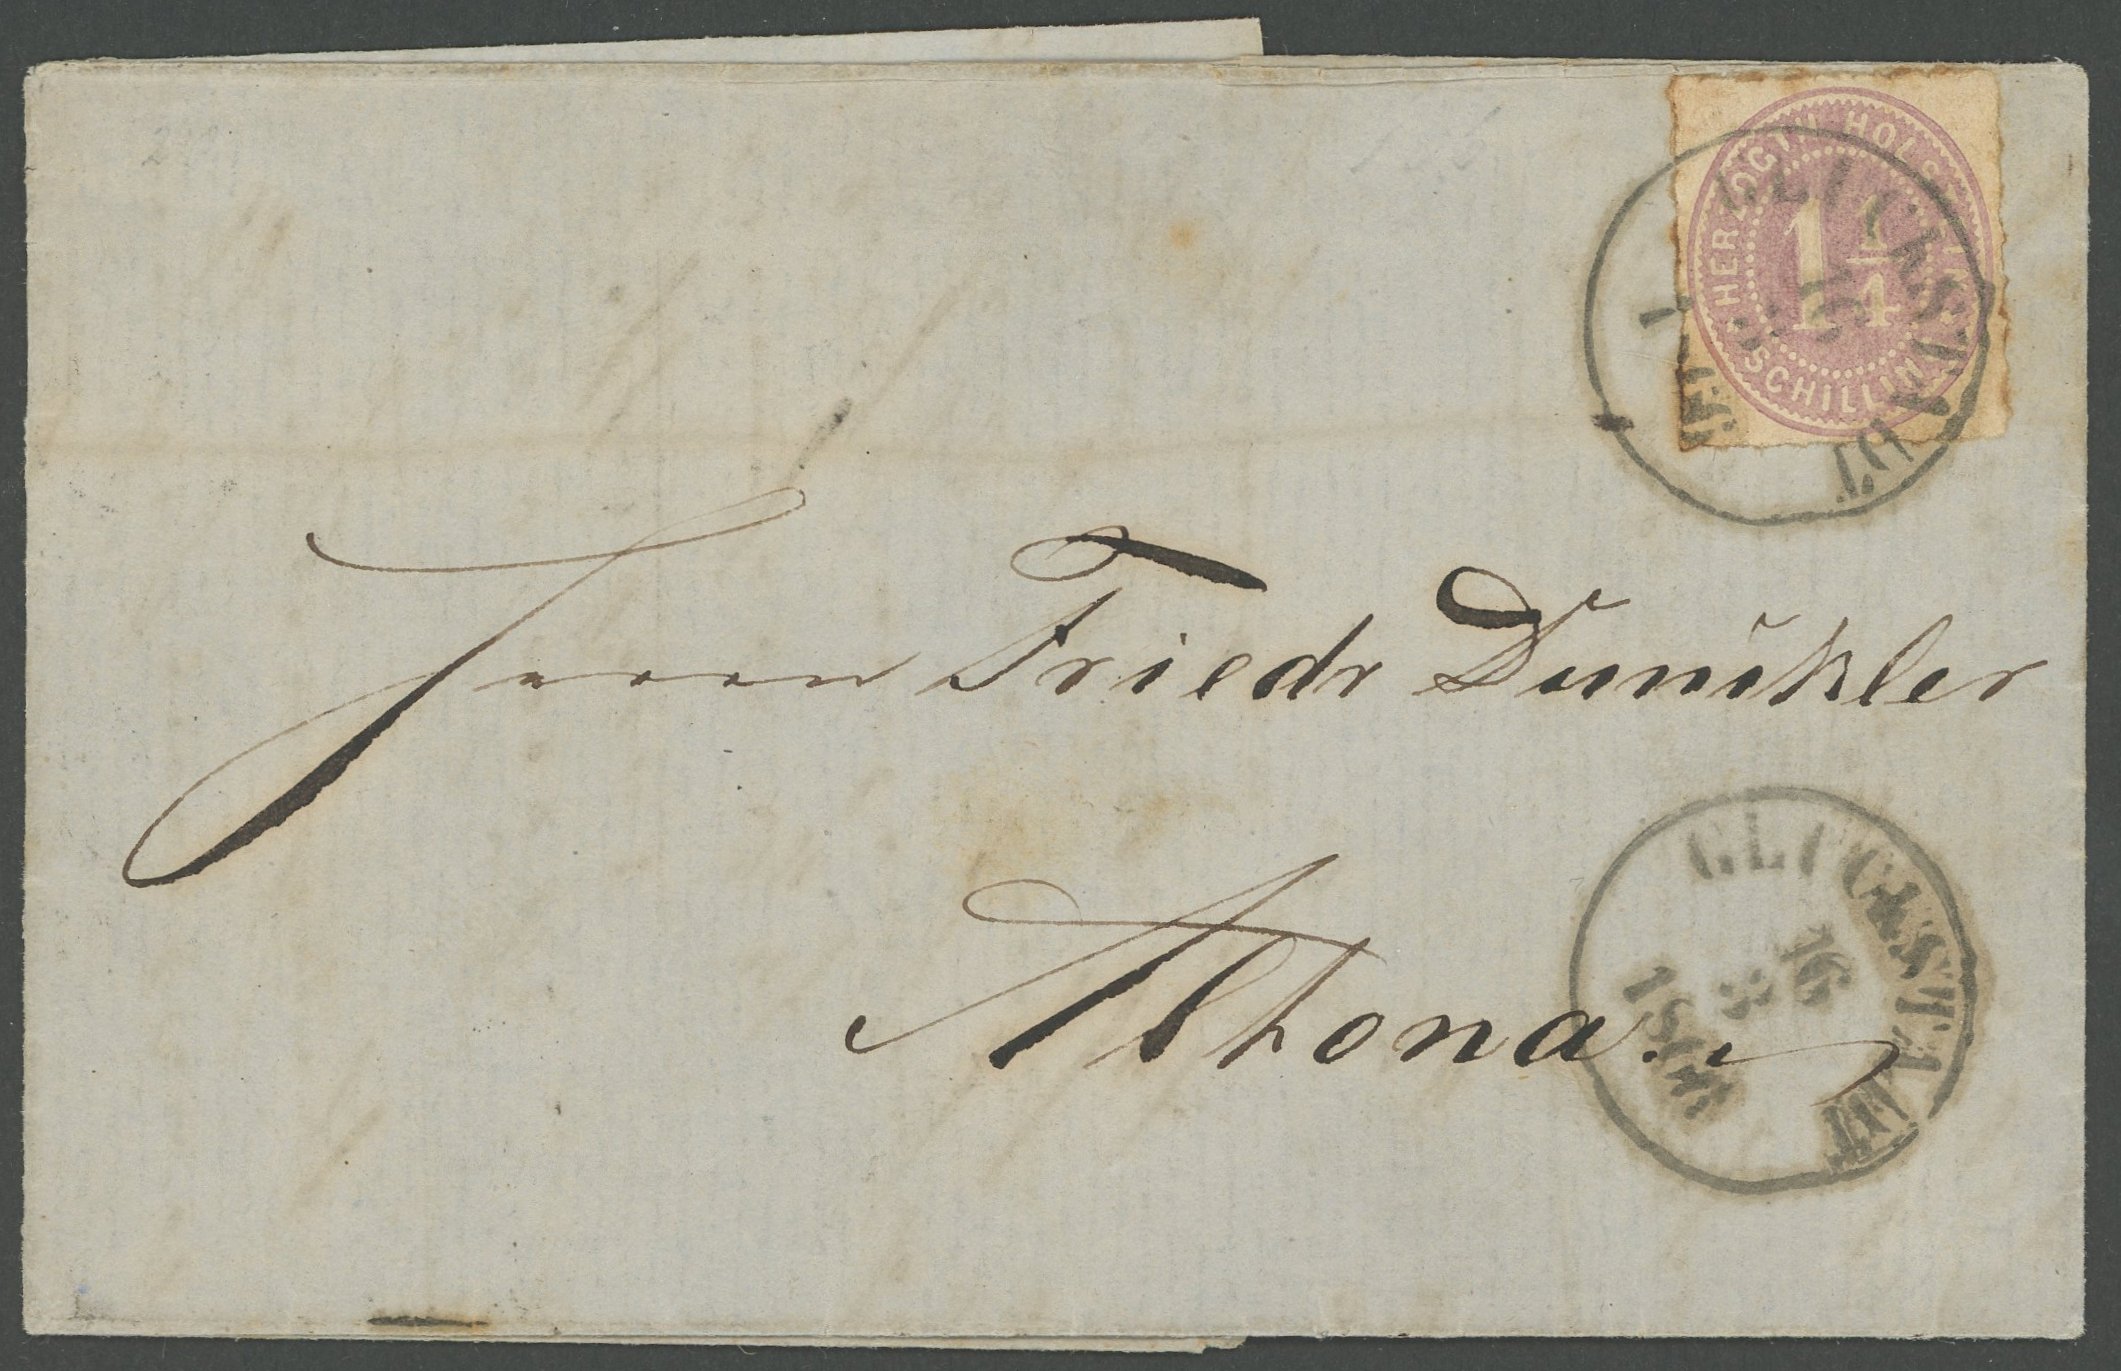 HERZOGTH. HOLSTEIN
1 1/4
SCHILLING
GLÜCKSTADT
16
8
Herrn Friedr Dunckler
Altona.
GLÜCKSTADT
16
8